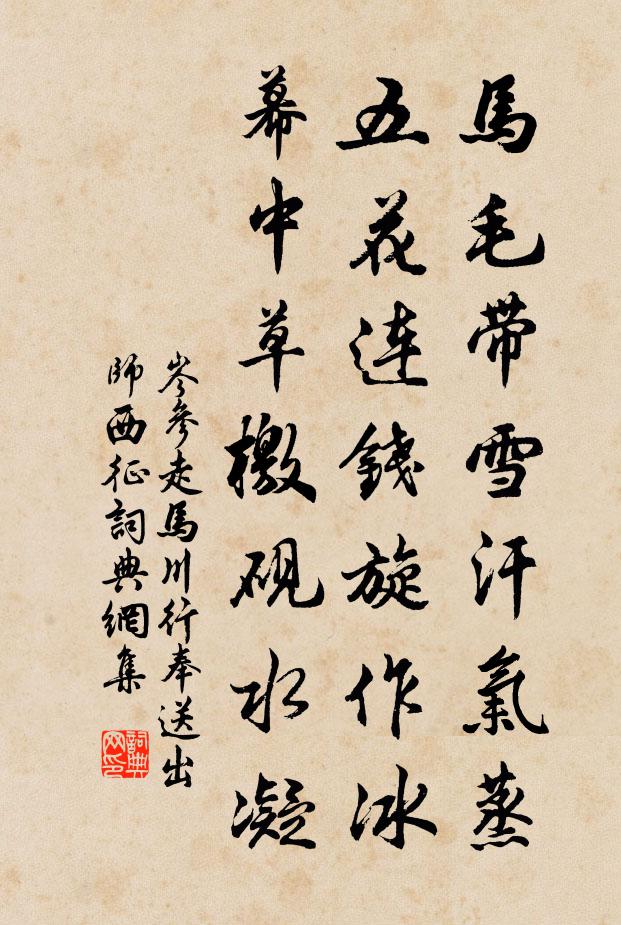 馬毛带雪汗氣蒸
五花連錢旋作冰
幕中草檄硯水凝
岑參走馬川行奉送出
師西征詞典網集
詞典
网印